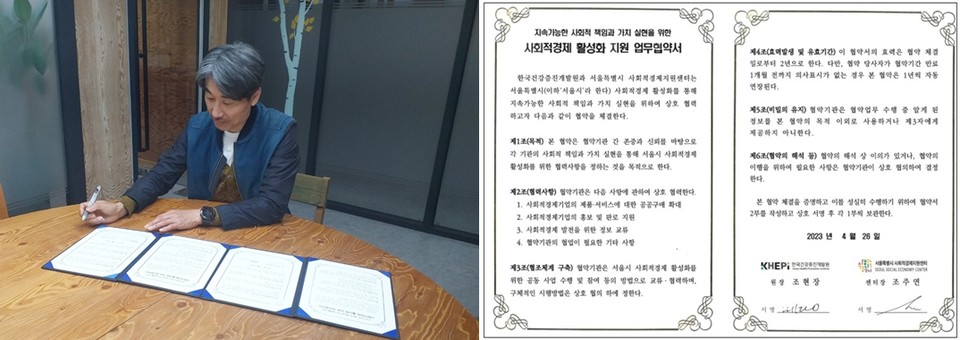 지속가능한 사회적 책임과 가치 실현을 위한
사회적경제 활성화 지원 업무협약서
한국건강증진개발원과 서울특별시 사회적경제지원센터는
서울특별시(이하'서울시'라 한다) 사회적경제 활성화를 통해
지속가능한 사회적 책임과 가치 실현을 위하여 상호 협력
하고자 다음과 같이 협약을 체결한다.
제1조(목적) 본 협약은 협약기관 간 존중과 신뢰를 바탕으로
각 기관의 사회적 책임과 가치 실현을 통해 서울시 사회적경제
활성화를 위한 협력사항을 정하는 것을 목적으로 한다.
제2조(협력사항) 협약기관은 다음 사항에 관하여 상호 협력한다.
1. 사회적경제기업의 제품·서비스에 대한 공공구매 확대
2. 사회적경제기업의 홍보 및 판로 지원
3. 사회적경제 발전을 위한 정보 교류
4. 협약기관의 협업이 필요한 기타 사항
제3조(협조체계 구축) 협약기관은 서울시 사회적경제 활성화를
위한 공동 사업 수행 및 참여 등의 방법으로 교류·협력하며,
구체적인 시행방법은 상호 협의 하에 정한다.
제4조(효력발생 및 유효기간) 이 협약서의 효력은 협약 체결
일로부터 2년으로 한다. 다만, 협약 당사자가 협약기간 만료
1개월 전까지 의사표시가 없는 경우 본 협약은 1년씩 자동
연장된다.
제5조(비밀의 유지) 협약기관은 협약업무 수행 중 알게 된
정보를 본 협약의 목적 이외로 사용하거나 제3자에게
제공하지 아니한다.
제6조(협약의 해석 등) 협약의 해석 상 이의가 있거나, 협약의
이행을 위하여 필요한 사항은 협약기관이 상호 협의하여 결정
한다.
본 협약 체결을 증명하고 이를 성실히 수행하기 위하여 협약서
2부를 작성하고 상호 서명 후 각 1부씩 보관한다.
2023 년 4 월 26 일
KHEPI 한국건강증진개발원
서울특별시 사회적경제지원센터
SEOUL SOCIAL ECONOMY CENTER
원장 조현장
센터장 조주연
서명
서명